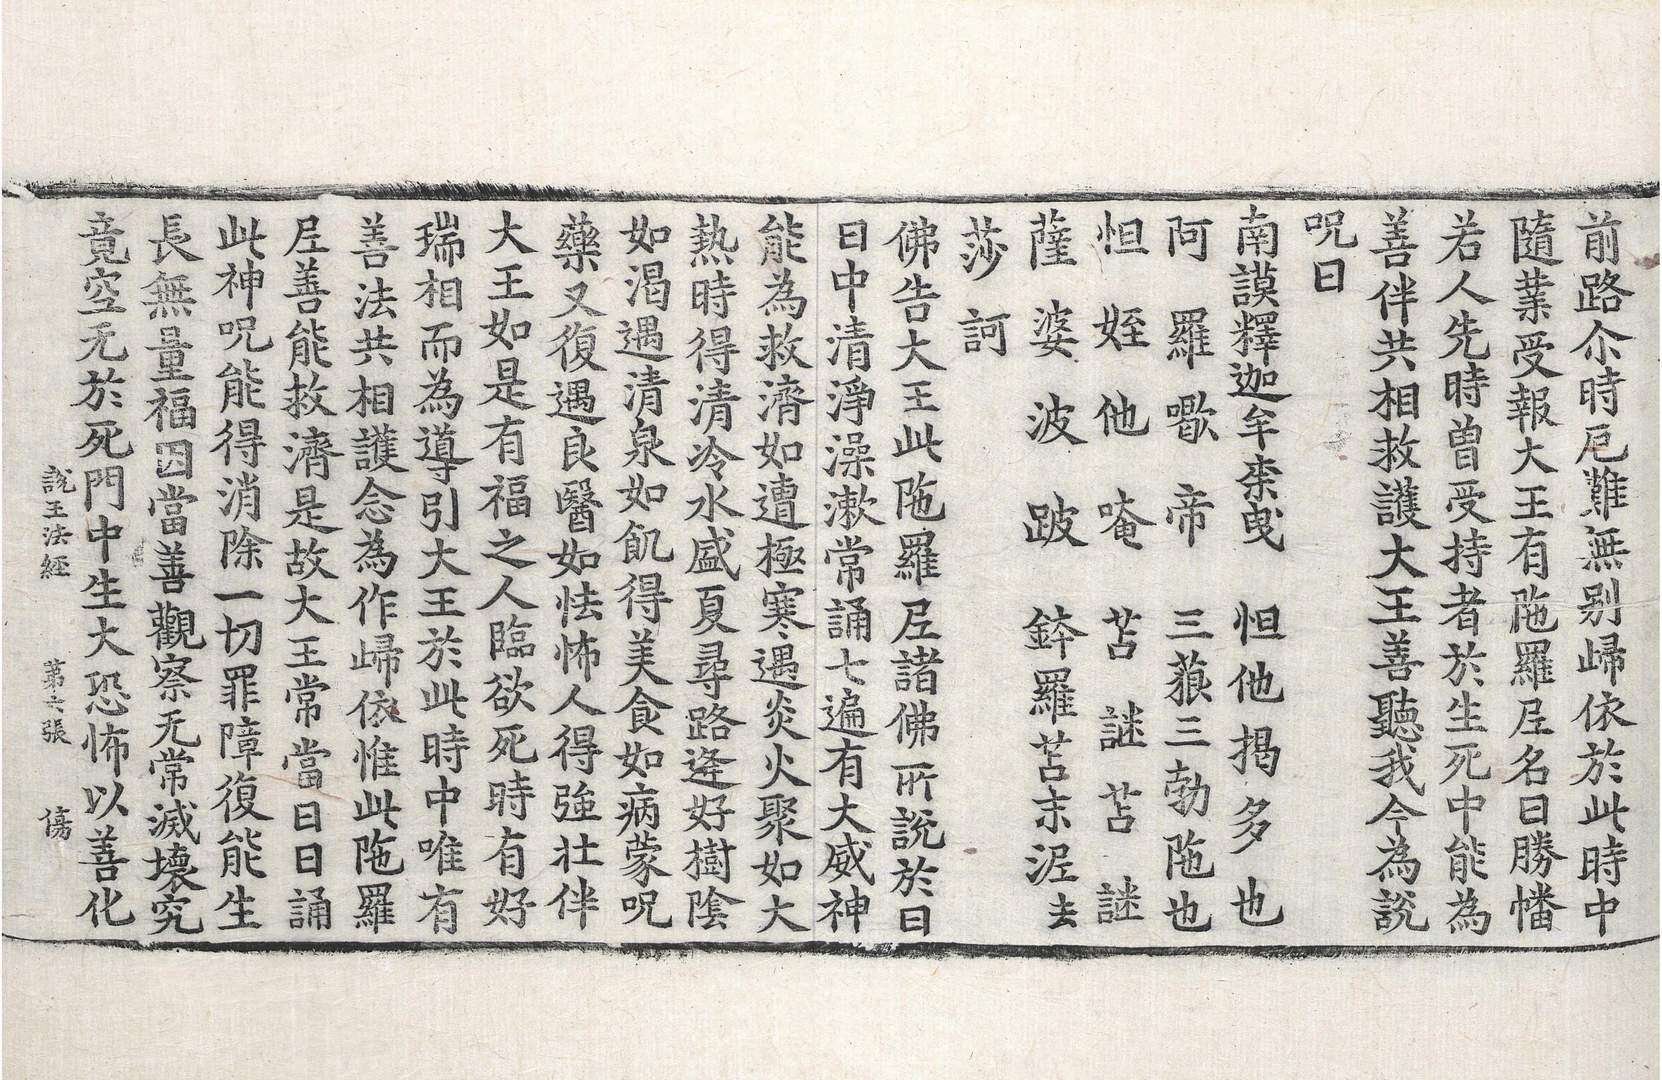 前路尒時厄難無别歸依於此時中
隨業受報大王有陁羅𡰱名曰勝幡
若人先時曾受持者於生死中能為
善伴共相救護大王善聽我今為說
呪曰
南謨釋迦牟柰曳 怛他揭多也
阿羅歇帝 三藐三勃陁也
怛姪他唵 苫謎苫謎
薩婆波跛 鉢羅苫末泥去
莎訶
佛告大王此陁羅𡰱諸佛所說於日
日中清淨澡漱常誦七遍有大威神
能為救濟如遭極寒遇炎火聚如大
熱時得清冷水盛夏尋路逢好樹陰
如渴遇清泉如飢得美食如病蒙呪
藥又復遇良醫如怯怖人得強壯伴
大王如是有福之人臨欲死時有好
瑞相而為導引大王於此時中唯有
善法共相護念為作歸依惟此陁羅
𡰱善能救濟是故大王常當日日誦
此神呪能得消除一切罪障復能生
長無量福因當善觀察无常滅壞究
竟空无於死門中生大恐怖以善化
說王法經 第六張 傷